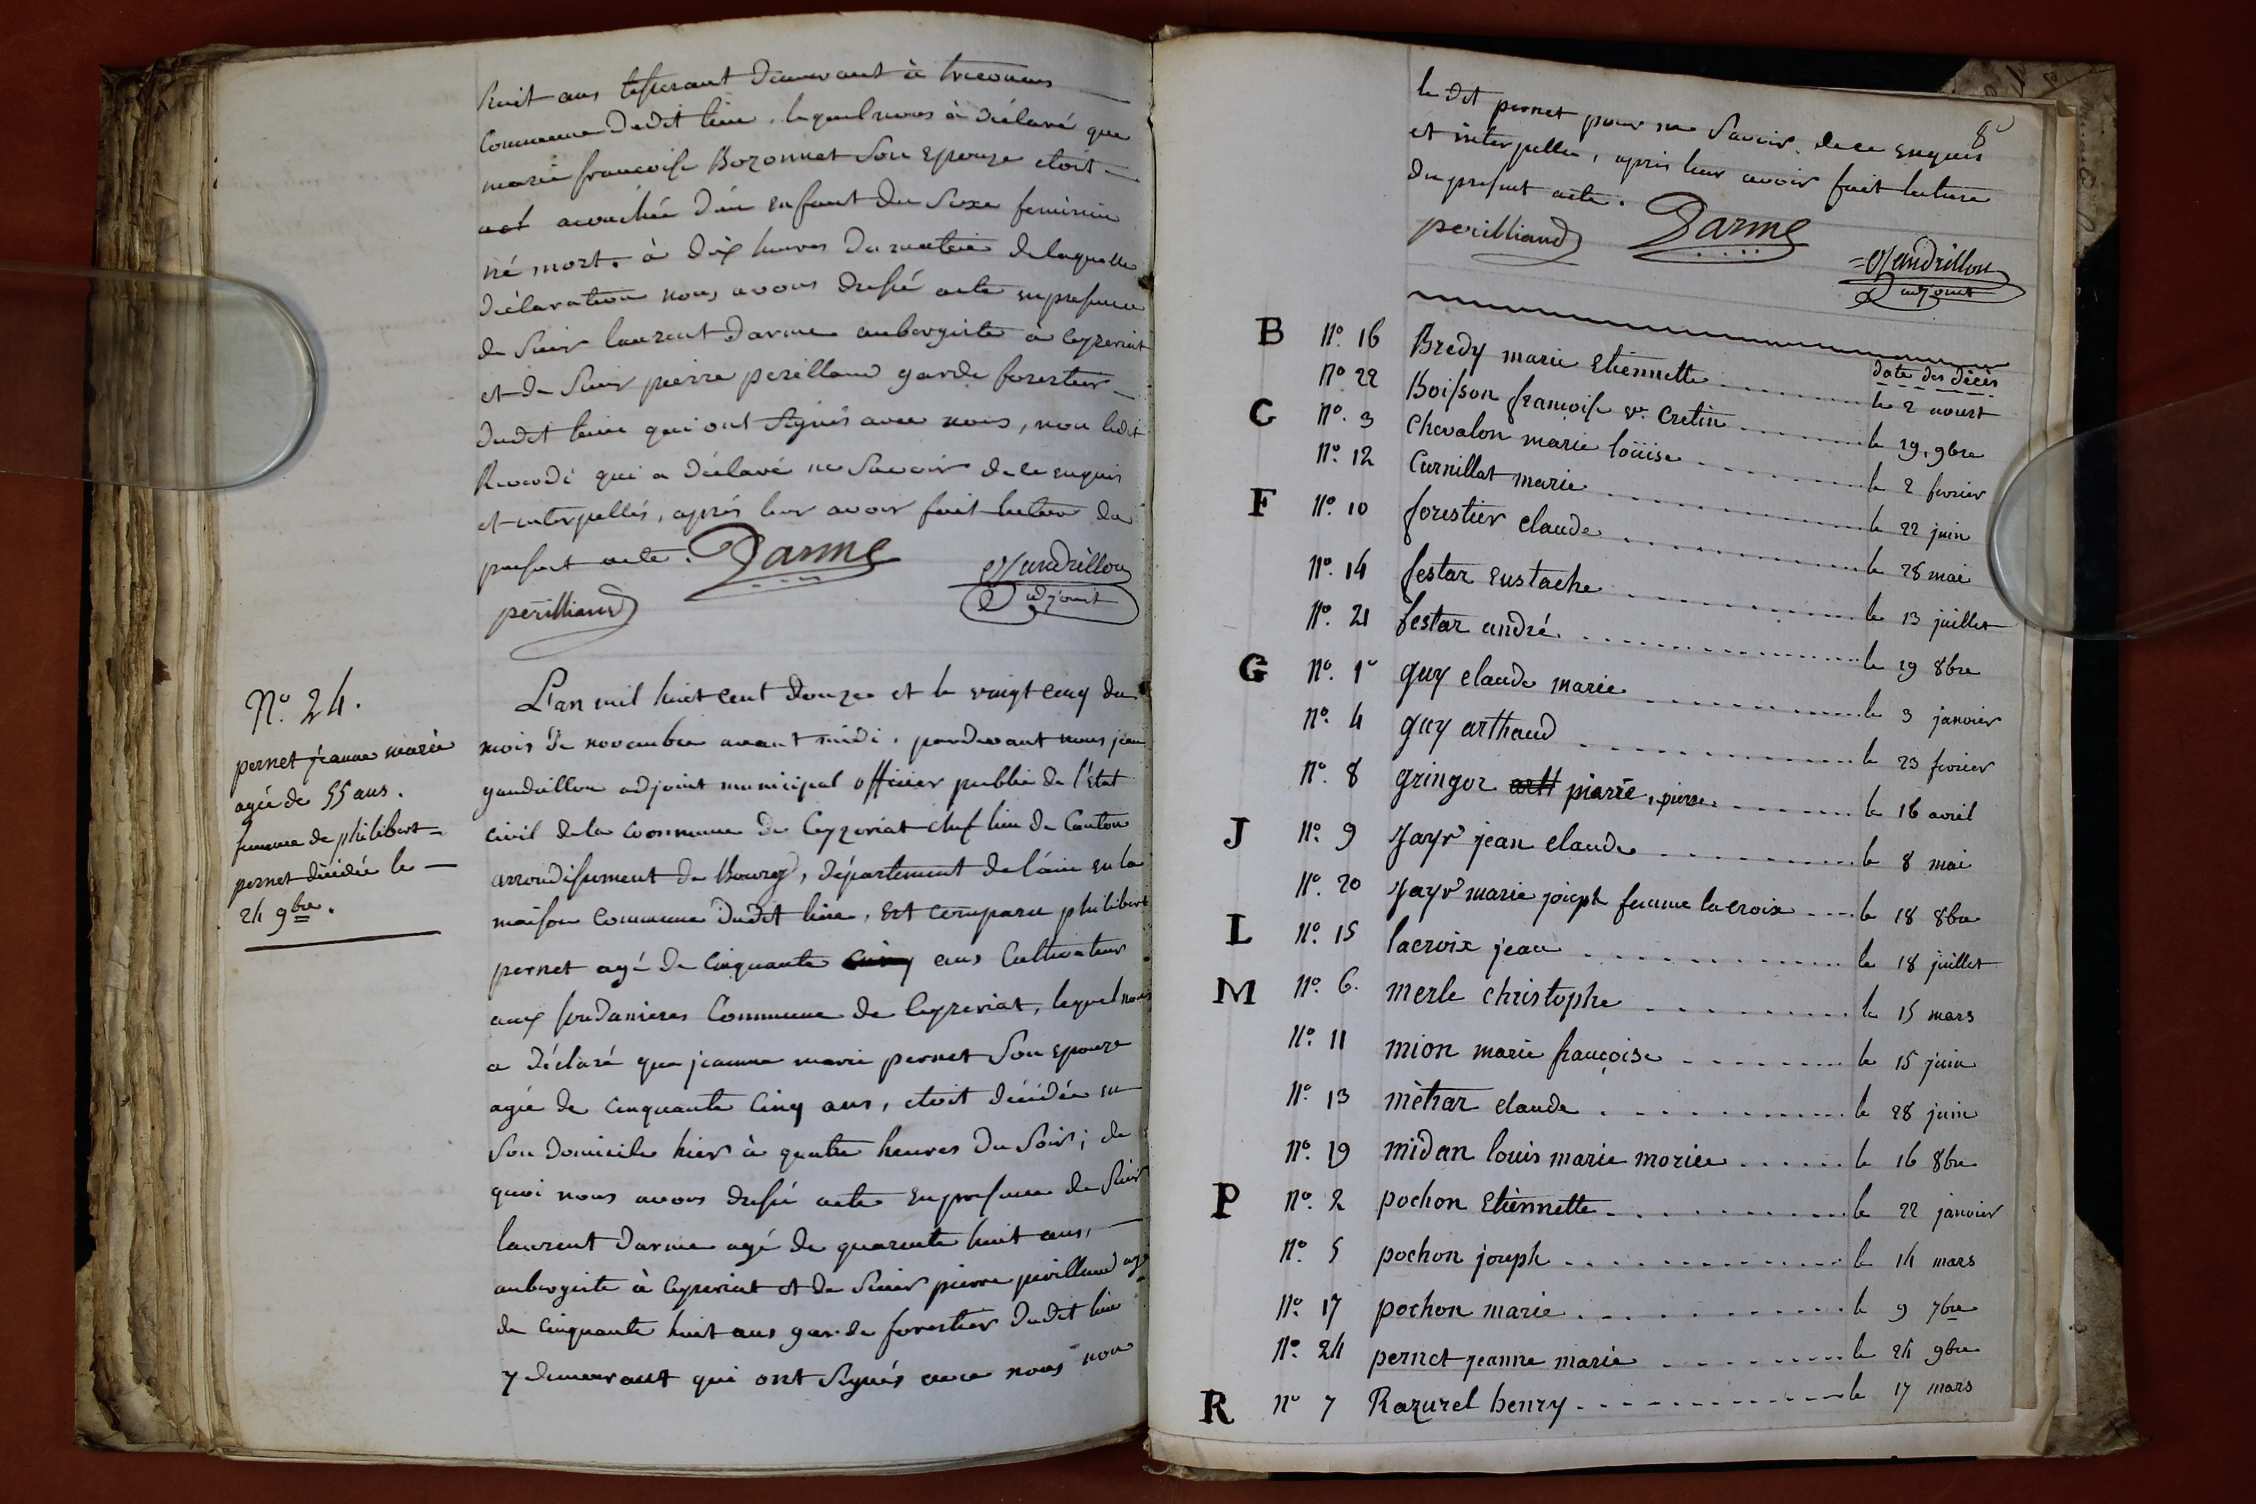 huit ans tisserant demeurant à treconnas
Commune dudit lieu, lequel nous à déclaré que
marie francoise Bozonnet Son Epouze etoit
acouchée d'un enfant du Sexe feminin
né mort. à dix heures du matin de laquelle
déclaration nous avons dressé acte en presence
de Sieur laurent darme aubergiste à Ceyzeriat
et de Sieur pierre perilland garde forestier
dudit lieu qui ont Signés avec nous, non ledit
qui a déclaré ne Savoir de ce enquis
et interpellés, après leur avoir fait lecture du
present acte. Darme
Gandrillon
adjoint
perilliand
N.o 24.
pernet jeanne marie
agée de 55 ans.
femme de philibert
pernet décédée le
24 9bre.
L'an mil huit cent douze et le vingt cinq du
mois de novembre avant midi, pardevant nous jean
gandrillon adjoint municipal officier public de l'Etat
civil de la Commune de Ceyzeriat chef lieu de Canton
arrondissement de Bourg, département de l'ain en la
maison Commune dudit lieu, Est comparu philibert
pernet agé de Cinquante ans Cultivateur
aux soudanieres Commune de Ceyzeriat, lequel nous
a déclaré que jeanne marie pernet Son epouze
agée de Cinquante Cinq ans, etoit décédée en
Son domicile hier à quatre heures du Soir; de
quoi nous avons dressé acte En presence de Sieur
laurent darme agé de quarente huit ans,
aubergiste à Ceyzeriat et de Sieur pierre perilland agé
de Cinquante huit ans garde forestier dudit lieu
y demeurant qui ont Signés avec nous non
8e
le dit pernet pour ne Savoir. de ce Enquis
et interpellés, après leur avoir fait lecture
du present acte.
perilliand Darme
Gandrillon
adjoint
date des décès
B N.o 16 Bredy marie Etiennette le 2 aoust
N.o 22 Boisson francoise ve. Cretin le 19. 9bre
C N.o 3 Chevalon marie loüise le 2 fevrier
N.o 12 Curnillat marie le 22 juin
F N.o 10 forestier claude le 28 mai
N.o 14 festaz Eustache le 13 juillet
N.o 21 festaz andré le 19 8bre
G N.o 1er guy claude marie le 3 janvier
N.o 4 guy arthaud le 23 fevrier
N.o 8 gringoz pierre, pierre le 16 avril
J N.o 9 Jayr jean claude le 8 mai
N.o 20 Jayr marie joseph femme lacroix le 18 8bre
L N.o 15 lacroix jean le 18 juillet
M N.o 6. merle christophe le 15 mars
N.o 11 mion marie françoise le 15 juin
N.o 13 mètraz claude le 28 juin
N.o 19 midan louis marie moziee le 16 8bre
P N.o 2 pochon Etiennette le 22 janvier
N.o 5 pochon joseph le 14 mars
N.o 17 pochon marie le 9 7bre
N.o 24 pernet jeanne marie le 24 9bre
R N.o 7 Razurel henry le 17 mars